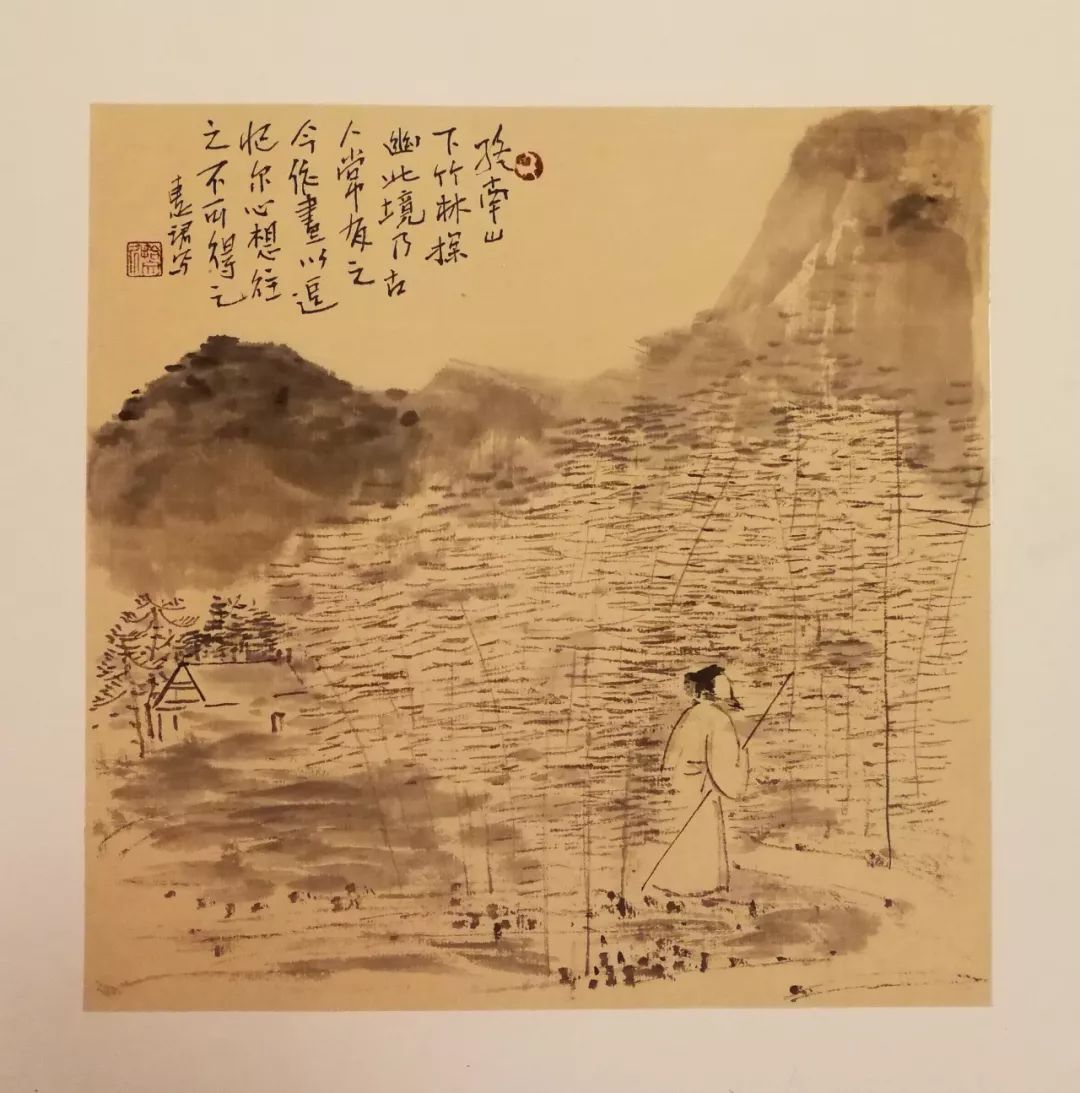 终南山
下竹林探
幽此境乃古
人常有之
今作畫以追
忆尔心想往
之不可得之
写